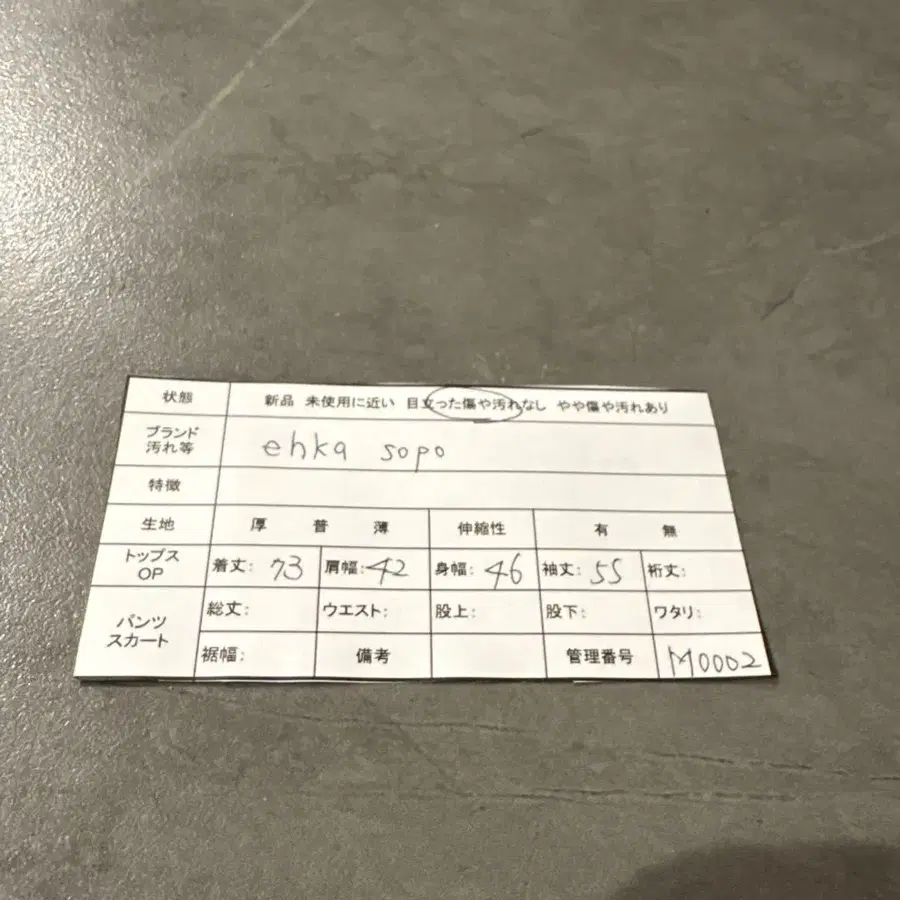 状態 新品 未使用に近い 目立った傷や汚れなし やや傷や汚れあり
ブランド 汚れ等 ehka sopo
特徴
生地 厚 普 薄 伸縮性 有 無
トップス OP 着丈: 73 肩幅: 42 身幅: 46 袖丈: 55 裄丈:
パンツ スカート 総丈: ウエスト: 股上: 股下: ワタリ:
裾幅: 備考 管理番号 M0002